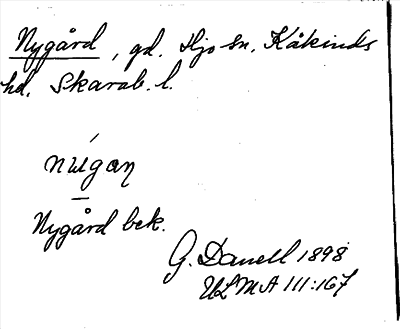 Nygård, gd. Hjo sn. Kåkinds
hd. Skarab. l.
nųgaɳ
Nygård bek.
G. Danell 1898
ULMA 111:167